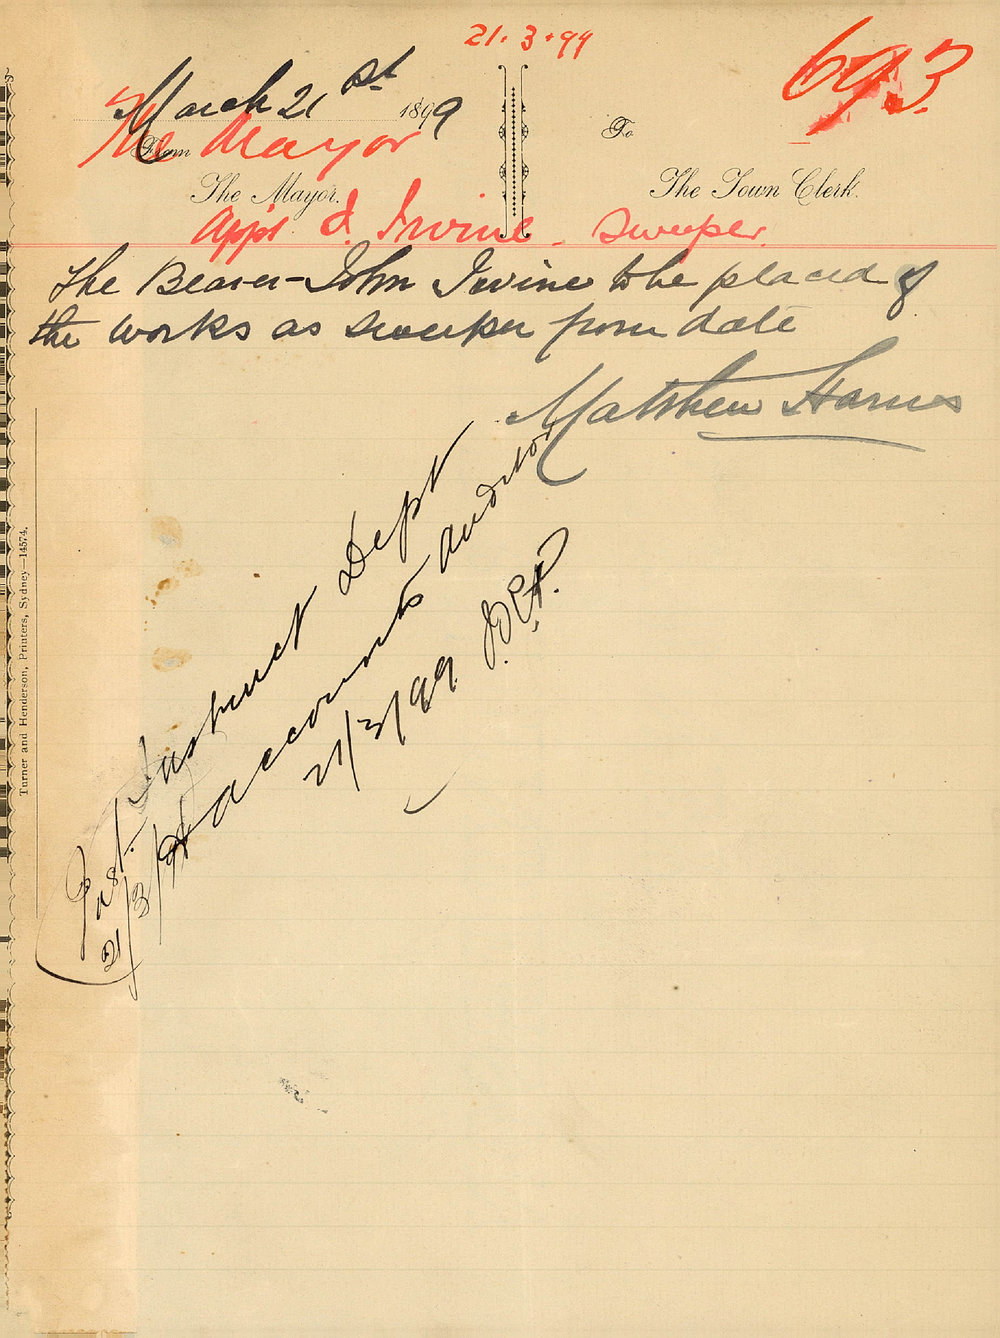 21.3.99
693
March 21st 1899
The Mayor
From
The Mayor.
To
The Town Clerk.
App't J. Irvine. Sweeper.
The Bearer - John Irvine to be placed of
the works as sweeper from date
Matthew Harris
Instruct Dept
& accounts auditor
21/3/99.
Inst.
21/3/99
Turner and Henderson, Printers, Sydney—14574.